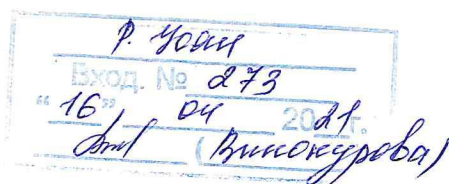 Вход. № 273
"16" 04 2021 г.
(Винокурова)